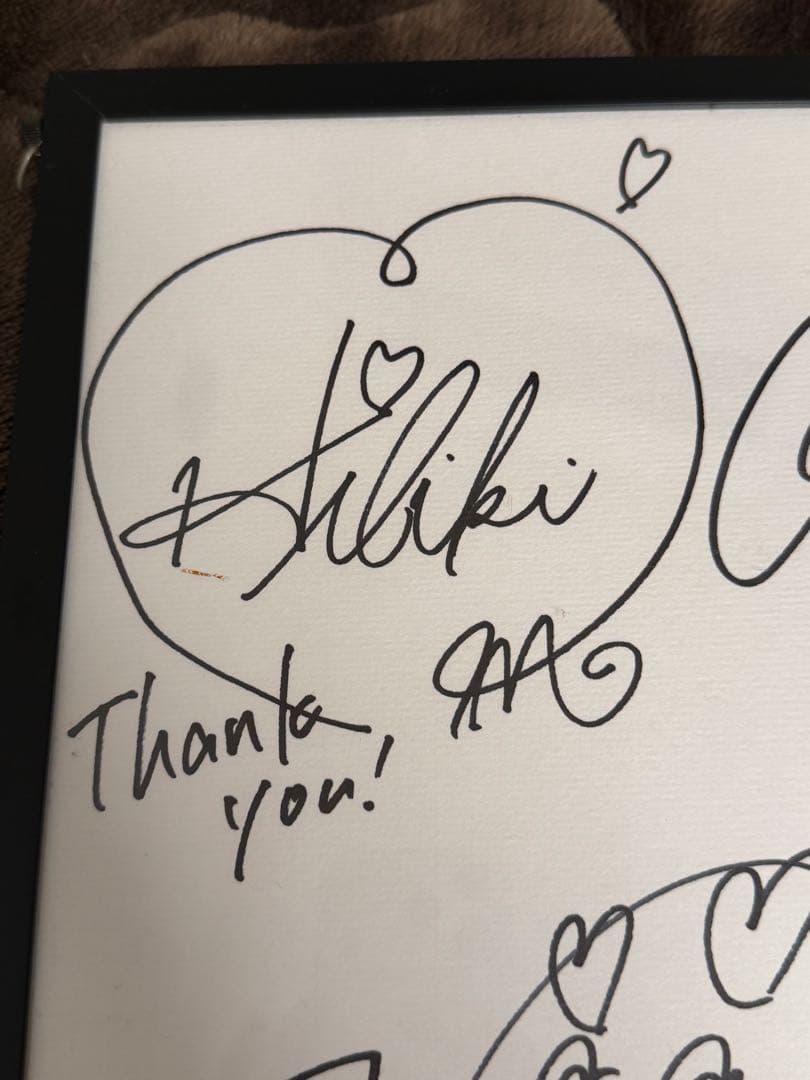 Hibiki
Thank
you!